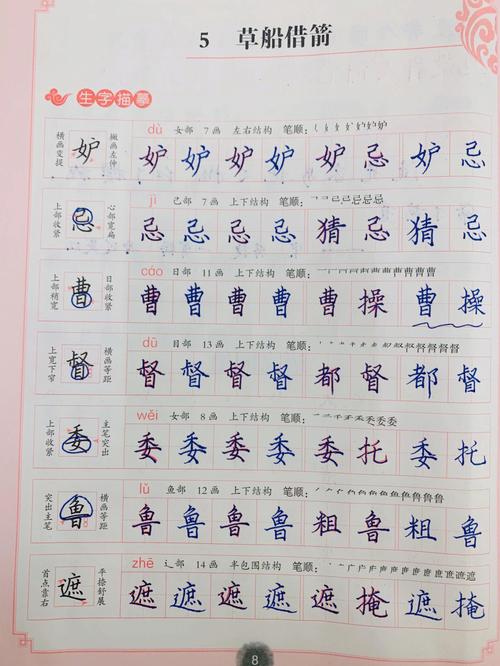 5 草船借箭
生字描摹
横画变提 妒 撇画左伸
dù 女部 7画 左右结构 笔顺:
妒 妒 妒 妒 妒 忌 妒 忌
上部收紧 忌 心部宽扁
jì 己部 7画 上下结构 笔顺:
忌 忌 忌 忌 猜 忌 猜 忌
上部稍宽 曹 日部收紧
cáo 日部 11画 上下结构 笔顺:
曹 曹 曹 曹 曹 操 曹 操
上宽下窄 督 横画等距
dū 目部 13画 上下结构 笔顺:
督 督 督 督 都 督 都 督
上部收紧 委 主笔突出
wěi 女部 8画 上下结构 笔顺:
委 委 委 委 委 托 委 托
突出主笔 鲁 横画等距
lǔ 鱼部 12画 上下结构 笔顺:
鲁 鲁 鲁 鲁 粗 鲁 粗 鲁
首点靠右 遮 平捺舒展
zhē 辶部 14画 半包围结构 笔顺:
遮 遮 遮 遮 遮 掩 遮 掩
8